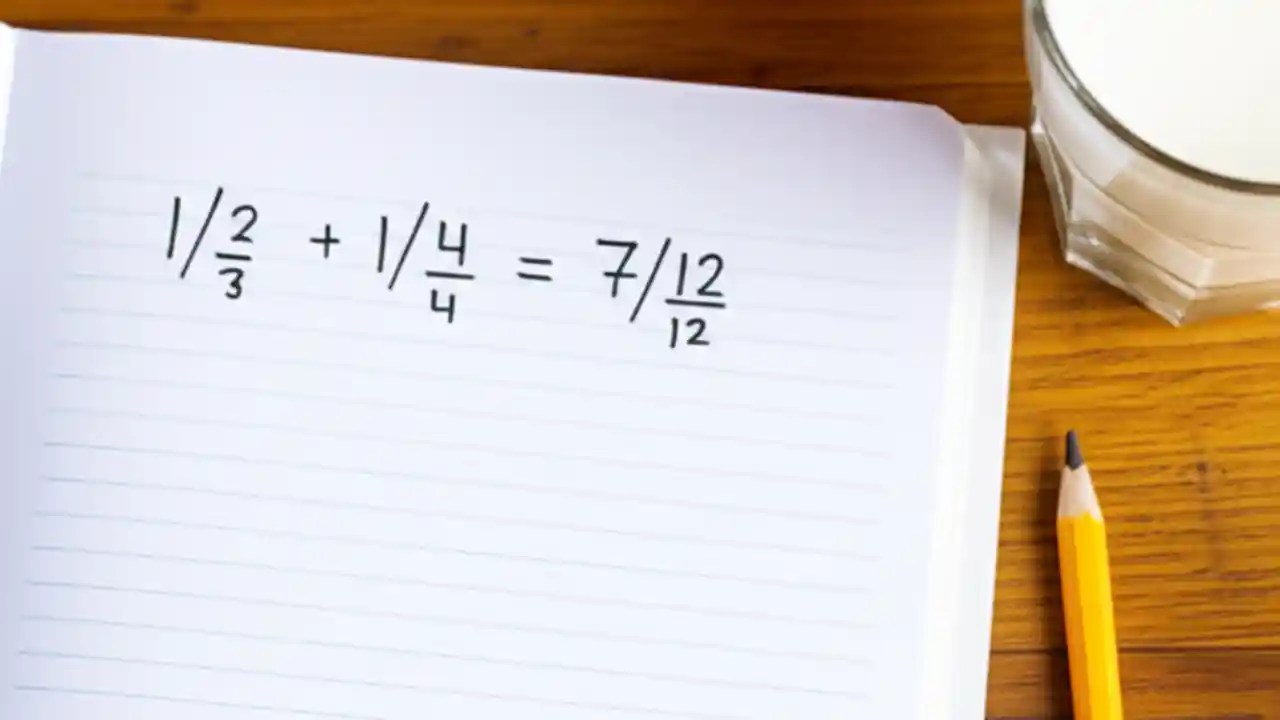 1/2/3 + 1/4/4 = 7/12/12